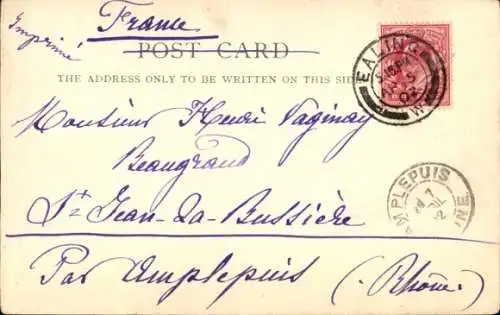 France
Imprimé
POST CARD
THE ADDRESS ONLY TO BE WRITTEN ON THIS SIDE
Monsieur Henri Vaginay
Beaugrand
St Jean-la-Bussière
Par Amplepuis
(Rhône)
EALING
W
AMPLEPUIS